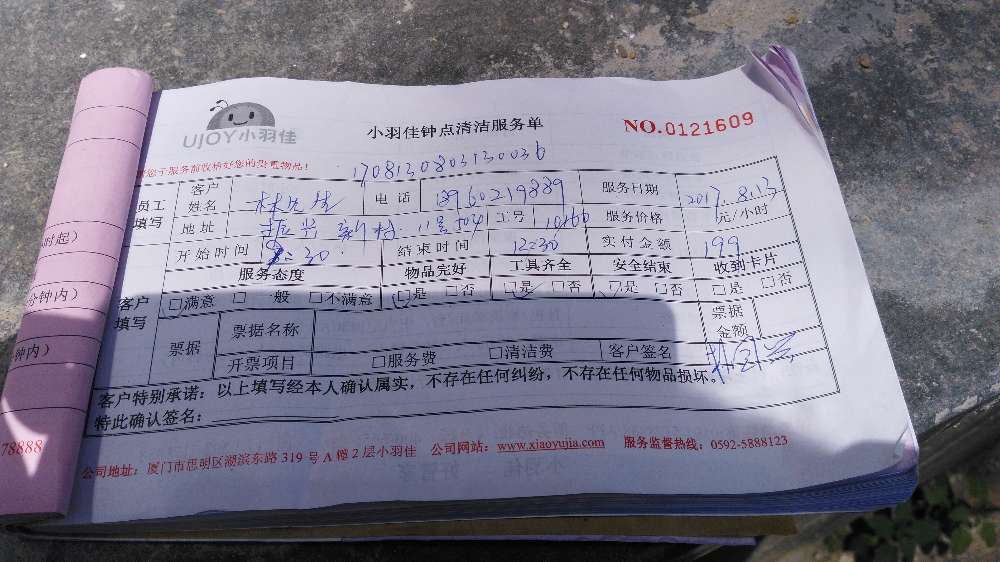 UJOY小羽佳
小羽佳钟点清洁服务单
NO.0121609
您于服务前收拾好您的贵重物品!
1708130803130036
员工填写 客户姓名 林先生 电话 18960219889 服务日期 2017.8.13
地址 振兴新村 11号504 工号 服务价格 元/小时
开始时间 :30 结束时间 12:30 实付金额 199
服务态度 物品完好 工具齐全 安全结束 收到卡片
客户填写 □满意 □一般 □不满意 □是 □否 □是 □否 □是 □否 □是 □否
票据 票据名称 票据金额
开票项目 □服务费 □清洁费 客户签名
客户特别承诺:以上填写经本人确认属实,不存在任何纠纷,不存在任何物品损坏。
特此确认签名:
公司地址:厦门市思明区湖滨东路319号A幢2层小羽佳 公司网站:www.xiaoyujia.com 服务监督热线:0592-5888123
时起)
分钟内)
钟内)
78888